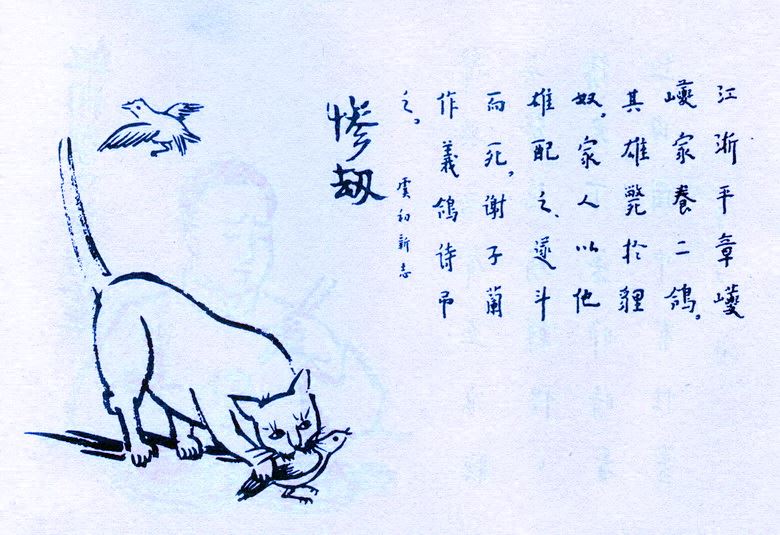 江浙平章巙
巙家養二鴿。
其雄斃於貍
奴。家人以他
雄配之、遂斗
而死。谢子蘭
作義鴿诗吊
之。
虞初新志
惨刼